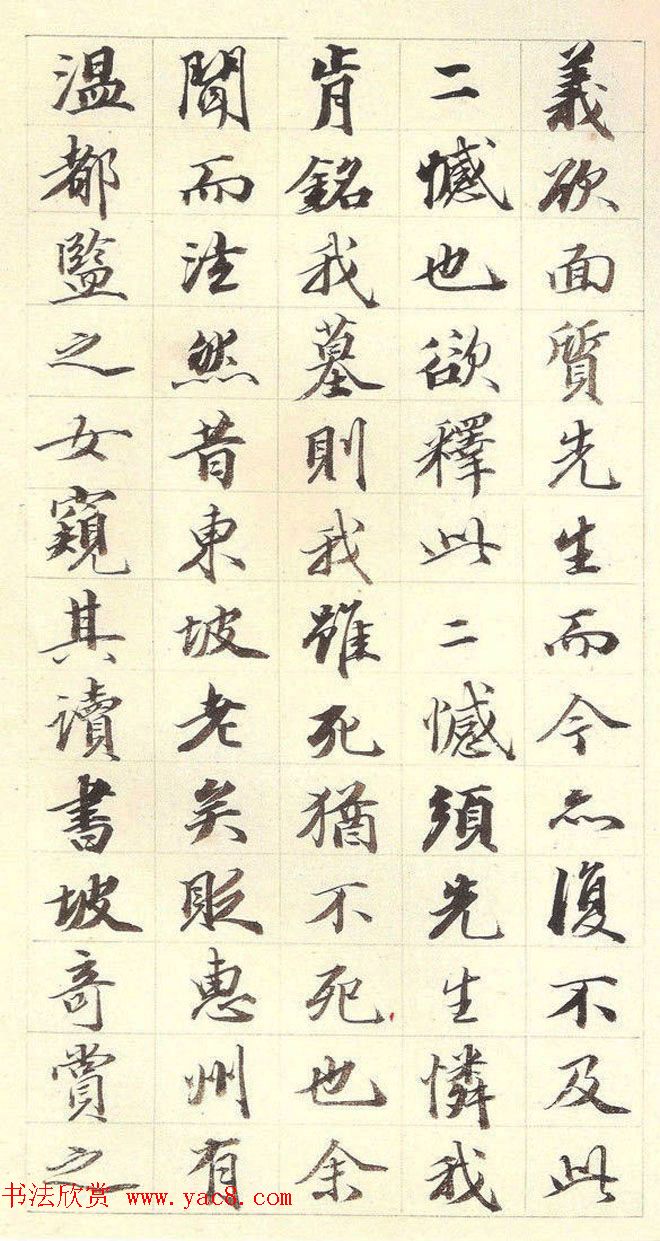 義欲面質先生而今亦復不及此
二憾也欲釋此二憾須先生憐我
肯銘我墓則我雖死猶不死也余
聞而泫然昔東坡老矣貶惠州有
溫都監之女窺其讀書坡奇賞之
书法欣赏 www.yac8.com